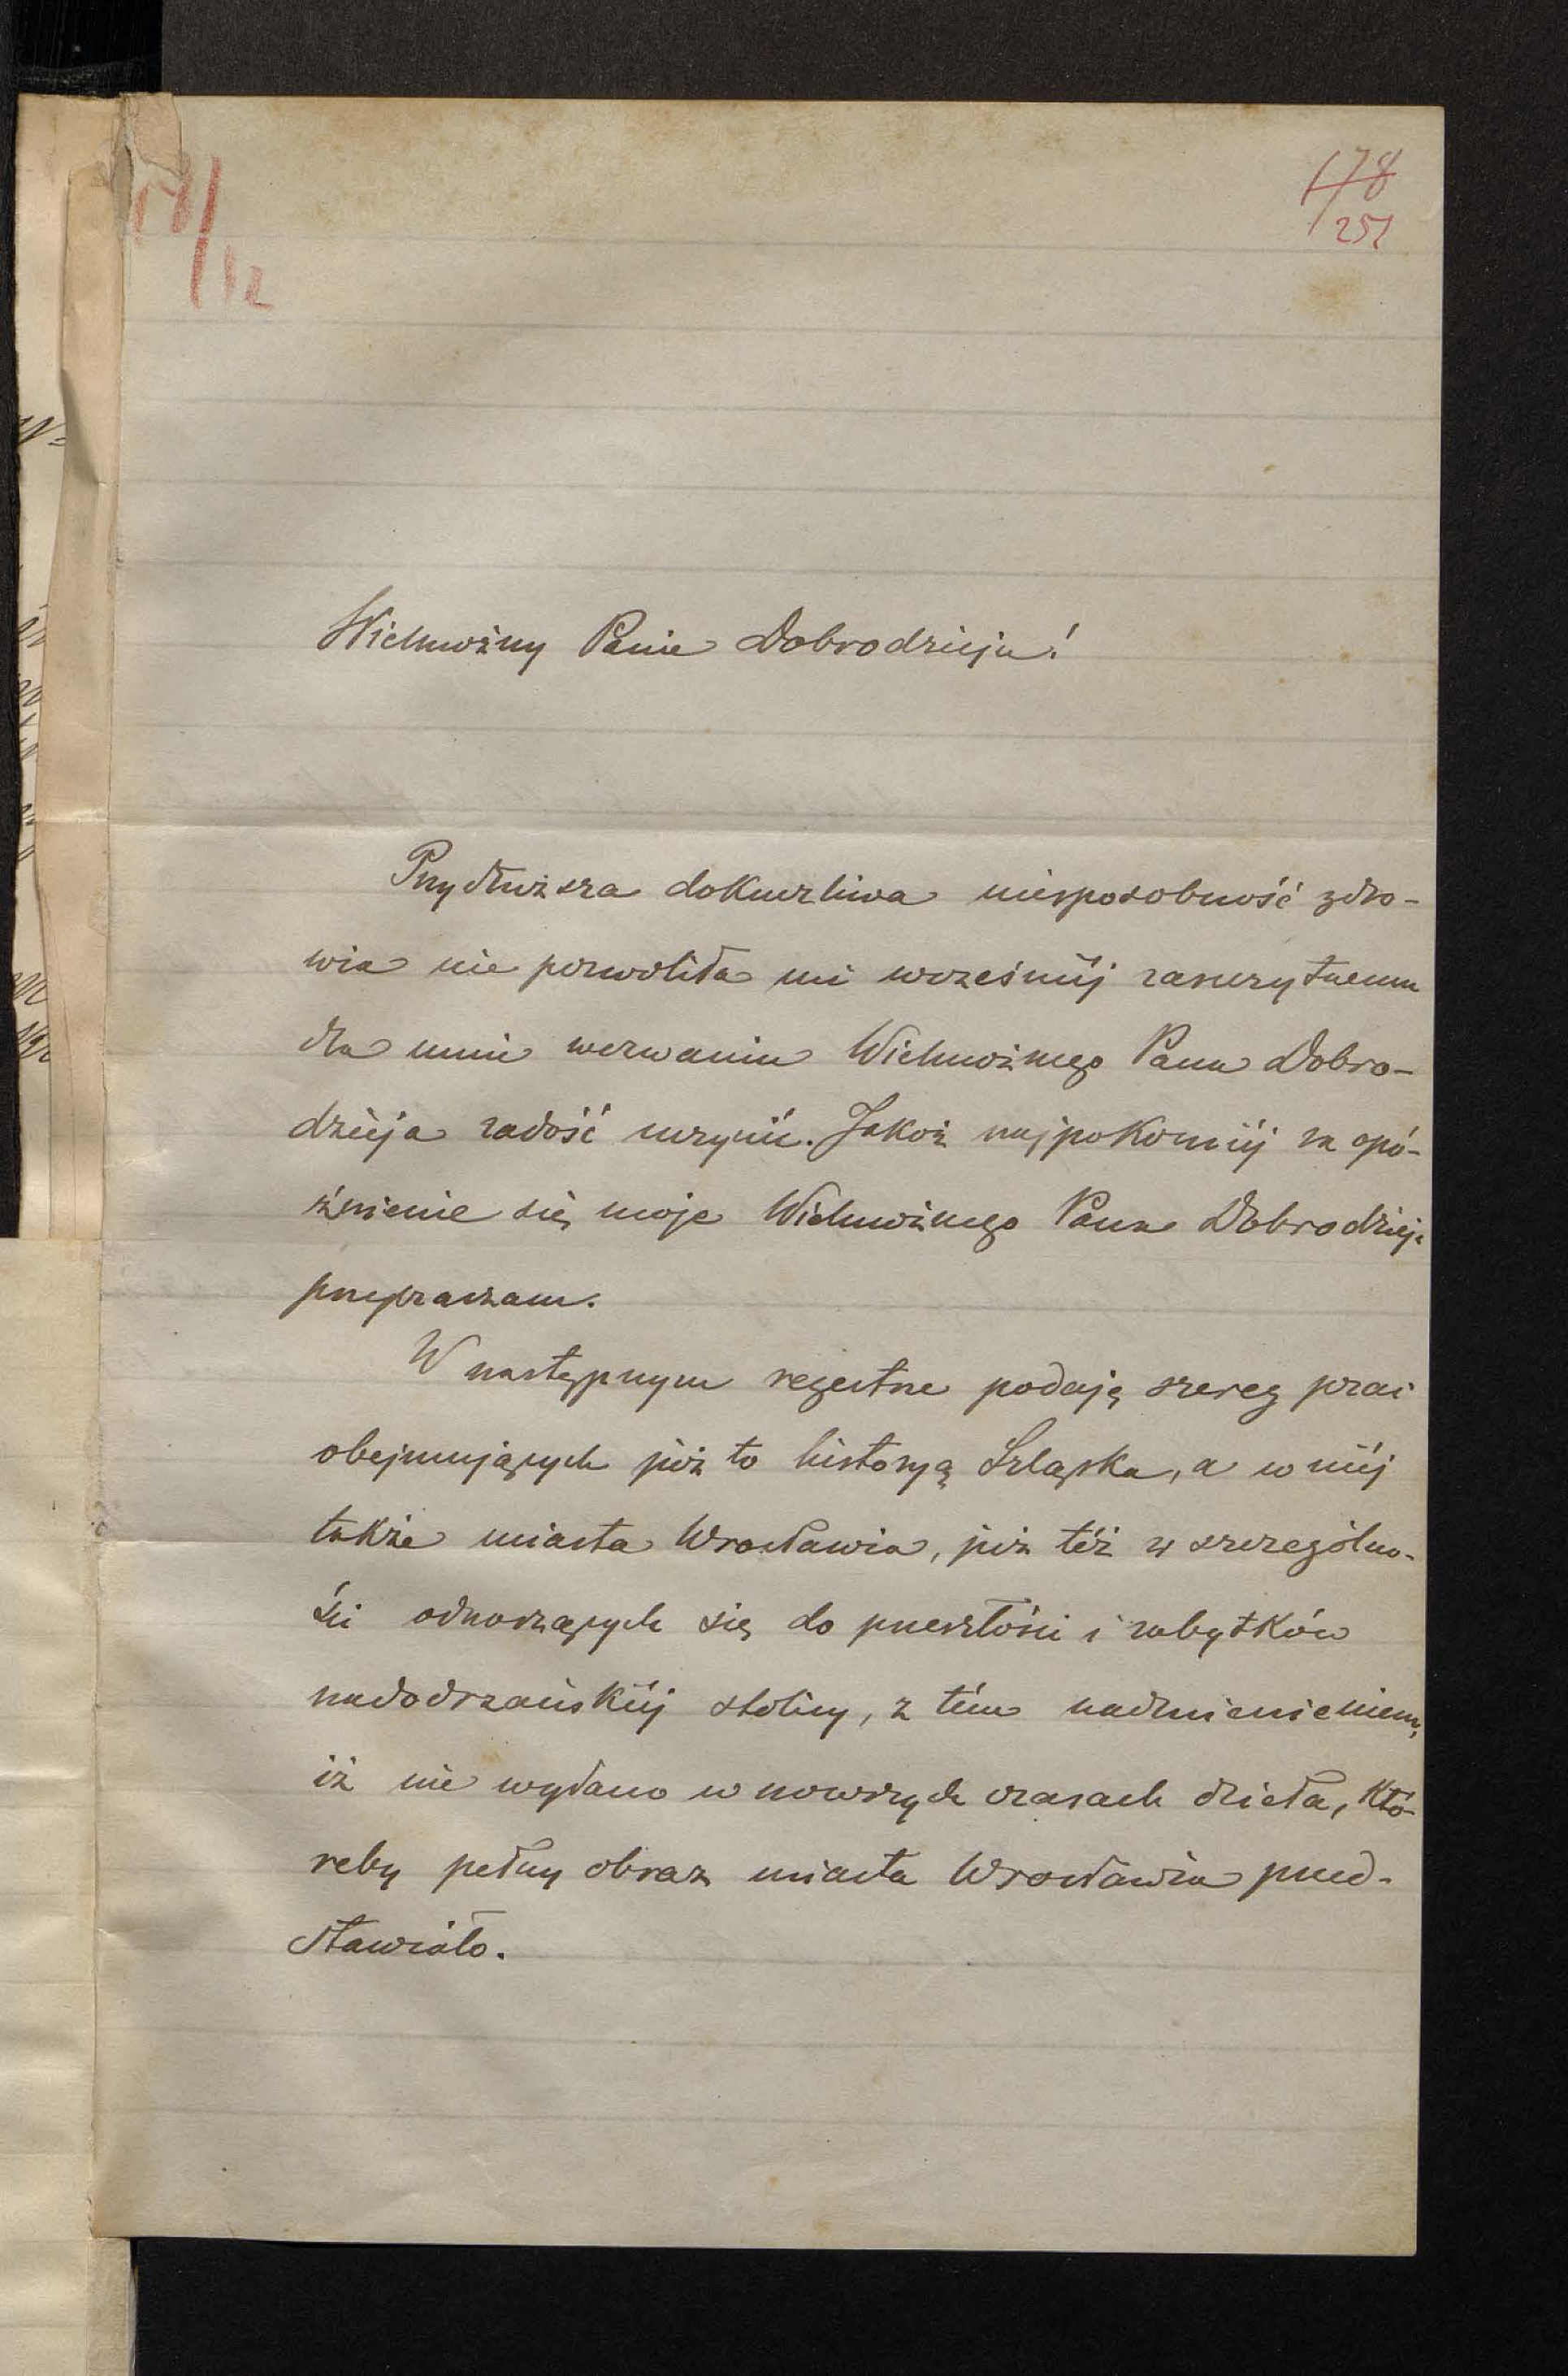 178
251
Wielmożny Panie Dobrodzieju!
Przydłuższa dokuczliwa niesposobność zdro-
wia nie pozwoliła mi wcześniéj zaszczytnemu
dla mnie wezwaniu Wielmożnego Pana Dobro-
dzieja zadość uczynić. Jakoż najpokorniéj za opó-
źnienie się moje Wielmożnego Pana Dobrodzieja
przepraszam.
W następnym regestrze podaję szereg prac
obejmujących już to historyą Szląska, a w niéj
także miasta Wrocławia, już téż w szczególno-
ści odnoszących się do przeszłości i zabytków
nadodrzańskiéj stolicy, z tém nadmienieniem,
iż nie wydano w nowszych czasach dzieła, któ-
reby pełny obraz miasta Wrocławia przed-
stawiało.